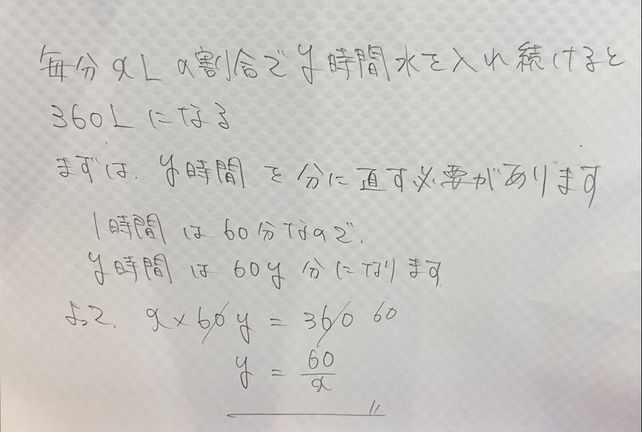 毎分xLの割合でy時間水を入れ続けると
360Lになる
まずは、y時間を分に直す必要があります
1時間は60分なので、
y時間は60y分になります
よって、x×60y=360 60
y=60/x